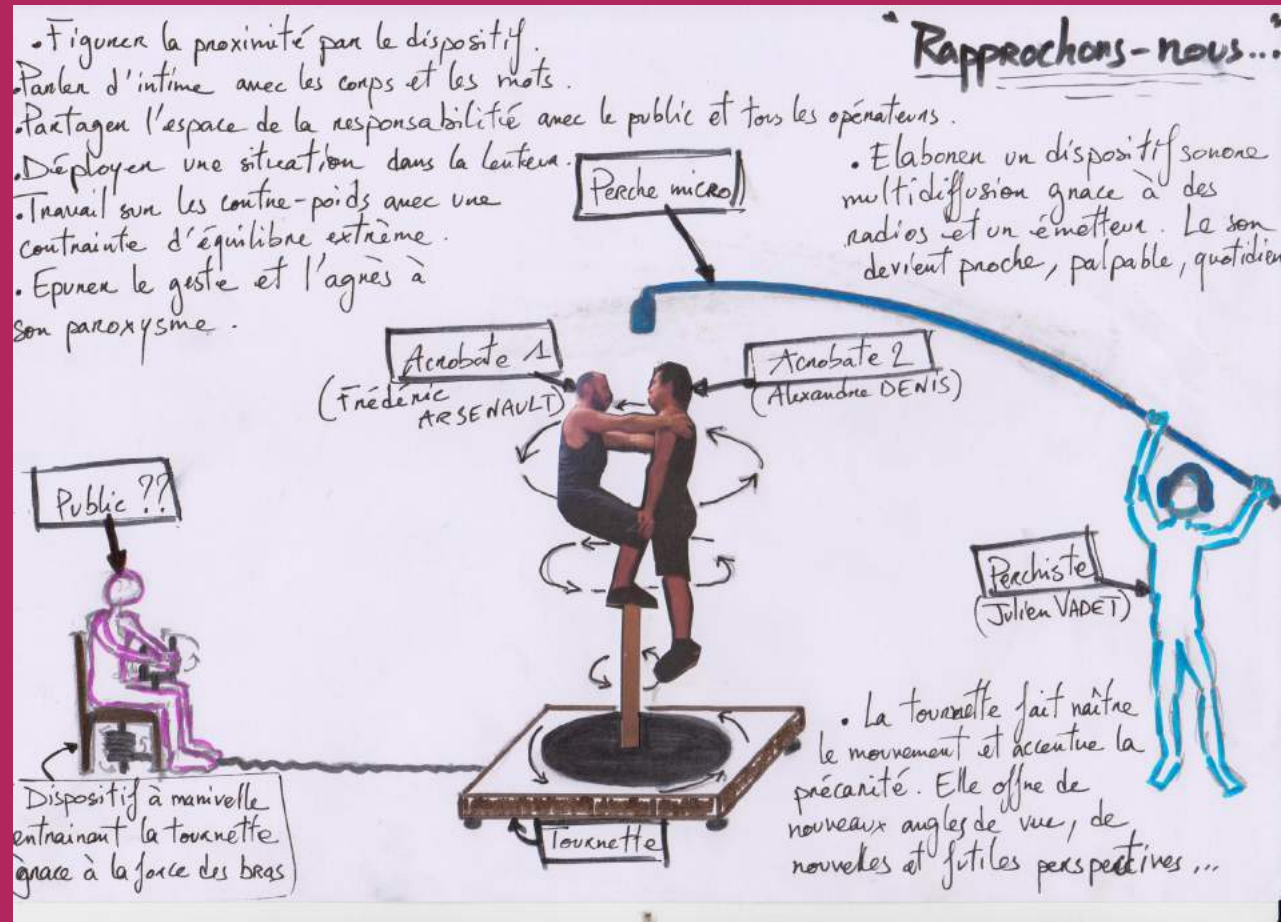 "Rapprochons-nous..."
• Figurer la proximité par le dispositif.
• Parler d'intime avec les corps et les mots.
• Partager l'espace de la responsabilitié avec le public et tous les opérateurs.
• Déployer une situation dans la lenteur.
• Travail sur les contre-poids avec une
contrainte d'équilibre extrème.
• Epurer le geste et l'agrès à
son paroxysme.
• Elaborer un dispositif sonore
multidiffusion grace à des
radios et un émetteur. Le son
devient proche, palpable, quotidien
Perche micro
Acrobate 1
(Frédéric
ARSENAULT)
Acrobate 2
(Alexandre DENIS)
Public ??
Perchiste
(Julien VADET)
Dispositif à manivelle
entrainant la tournette
grace à la force des bras
Tournette
• La tournette fait naître
le mouvement et accentue la
précarité. Elle offre de
nouveaux angles de vue, de
nouvelles et futiles perspectives...